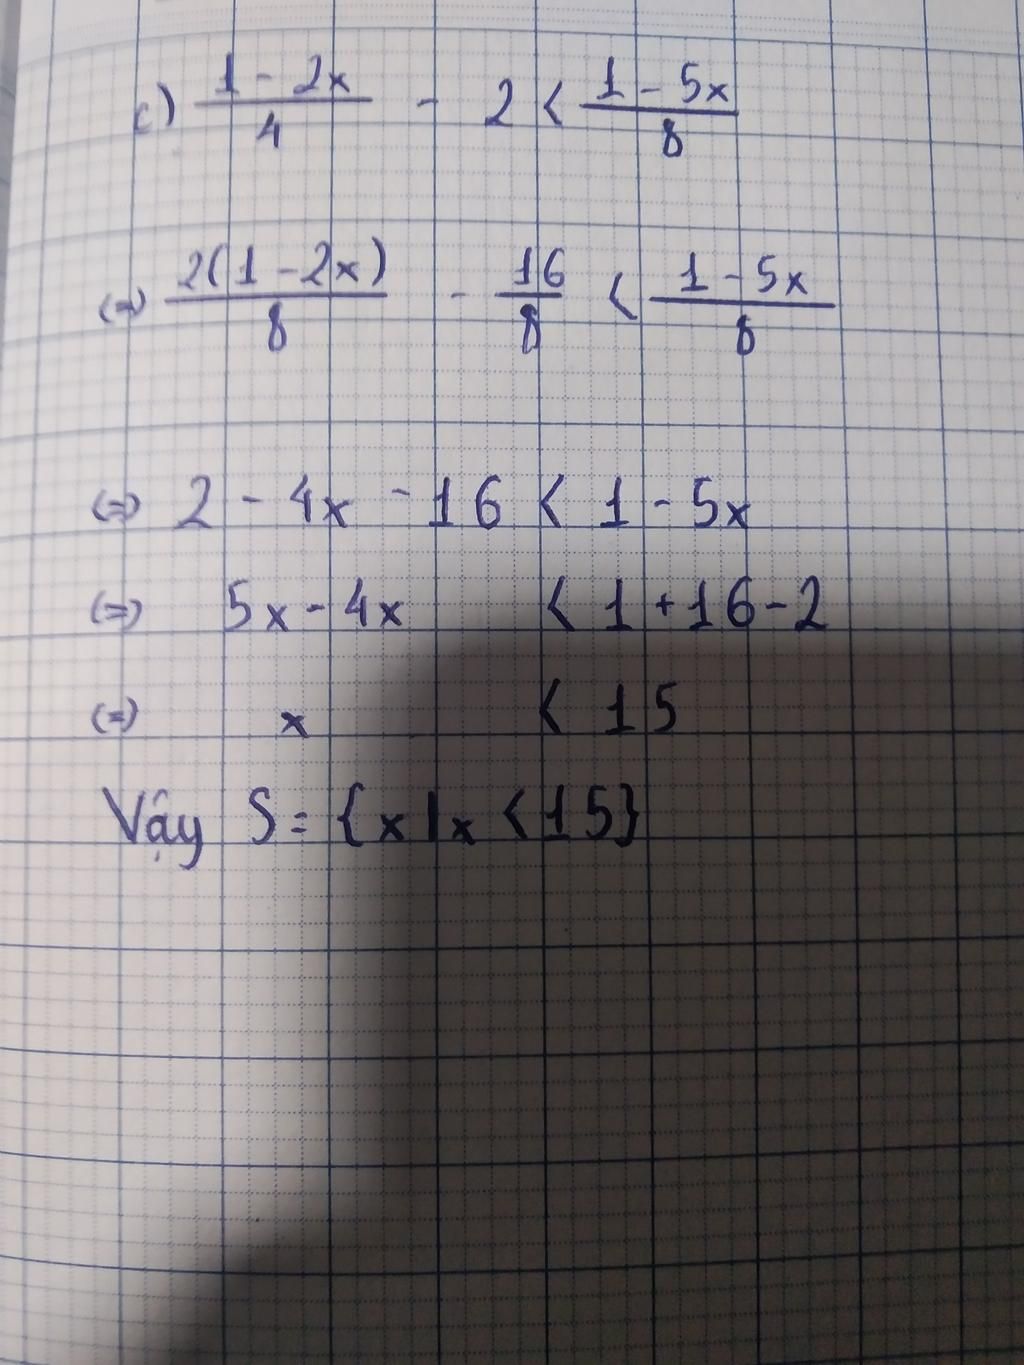 c) \frac{1 - 2x}{4} - 2 < \frac{1 - 5x}{8}
(=) \frac{2(1 - 2x)}{8} - \frac{16}{8} < \frac{1 - 5x}{8}
(=) 2 - 4x - 16 < 1 - 5x
(=) 5x - 4x < 1 + 16 - 2
(=) x < 15
Vậy S = {x | x < 15}